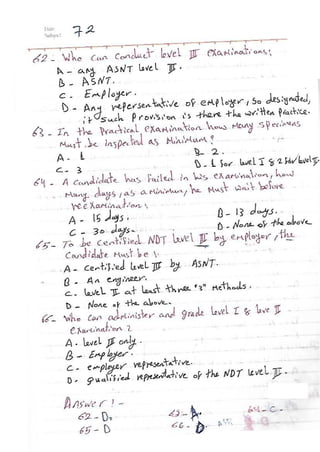 Date
Subject
72
62 - Who can conduct level III examinations:
A - any ASNT level III.
B - ASNT.
C - Employer.
D - Any repersentative of employer, so designated,
if such Provision is there the written Practice.
63 - In the Practical examination how many specimens
Must be inspected as Minimum?
A - 1
B - 2.
C - 3
D - 1 for level I & 2 for level II.
64 - A candidate has Failed in his examination, how
Many days, as a minimum, he Must wait before
reexamination:
A - 15 days.
B - 13 days.
C - 30 days.
D - None of the above
65 - To be certified NDT level III by employer, the
Candidate Must be:
A - Certified level III by ASNT.
B - An engineer.
C. level III at least three "3" Methods.
D - None of the above.
66 - Who can administer and grade level I & leve II
examination?
A. level III only.
B - Employer.
C. employer representative.
D - qualified representative of the NDT level III.
Answer :-
62 - D.
63 - A.
64 - C -
65 - D
66 - D.